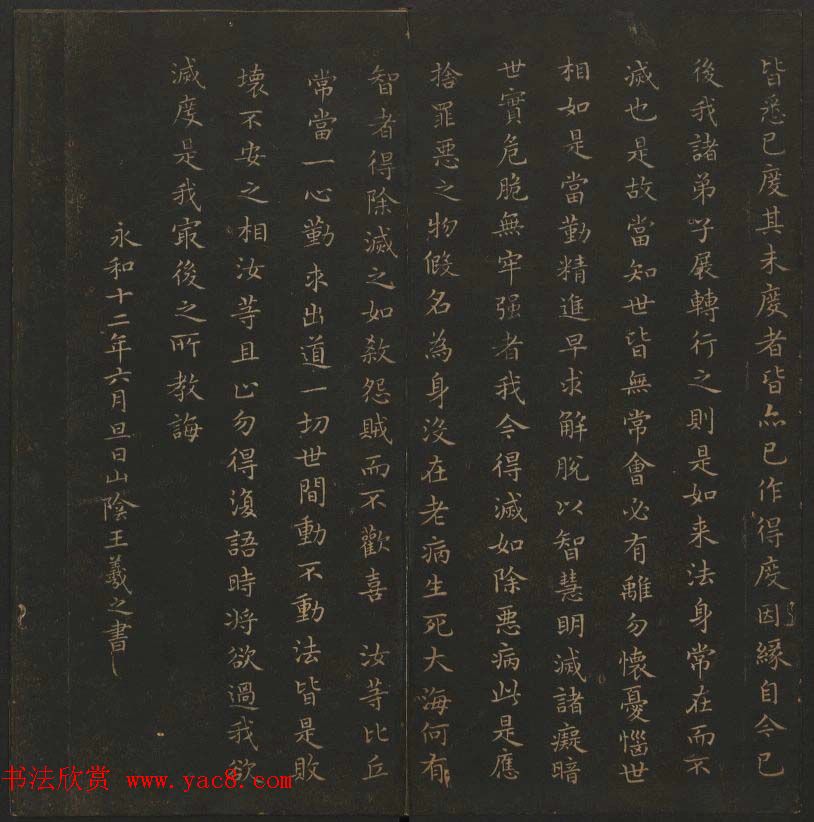 皆悉已度其未度者皆亦已作得度因緣自今已
後我諸弟子展轉行之則是如来法身常在而不
滅也是故當知世皆無常會必有離勿懷憂惱世
相如是當勤精進早求解脫以智慧明滅諸癡暗
世實危脆無牢强者我今得滅如除惡病此是應
捨罪惡之物假名為身沒在老病生死大海何有
智者得除滅之如殺怨賊而不歡喜 汝等比丘
常當一心勤求出道一切世間動不動法皆是敗
壞不安之相汝等且止勿得復語時將欲過我欲
滅度是我冣後之所教誨
永和十二年六月旦日山陰王羲之書
书法欣赏 www.yac8.com